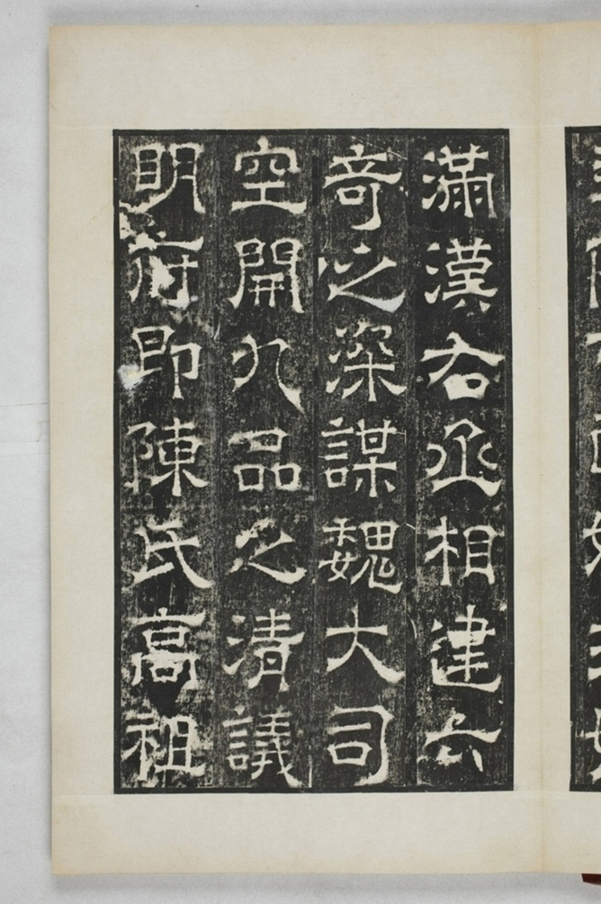 滿漢右丞相建六
奇之深謀魏大司
空開九品之清議
明府即陳氏高祖